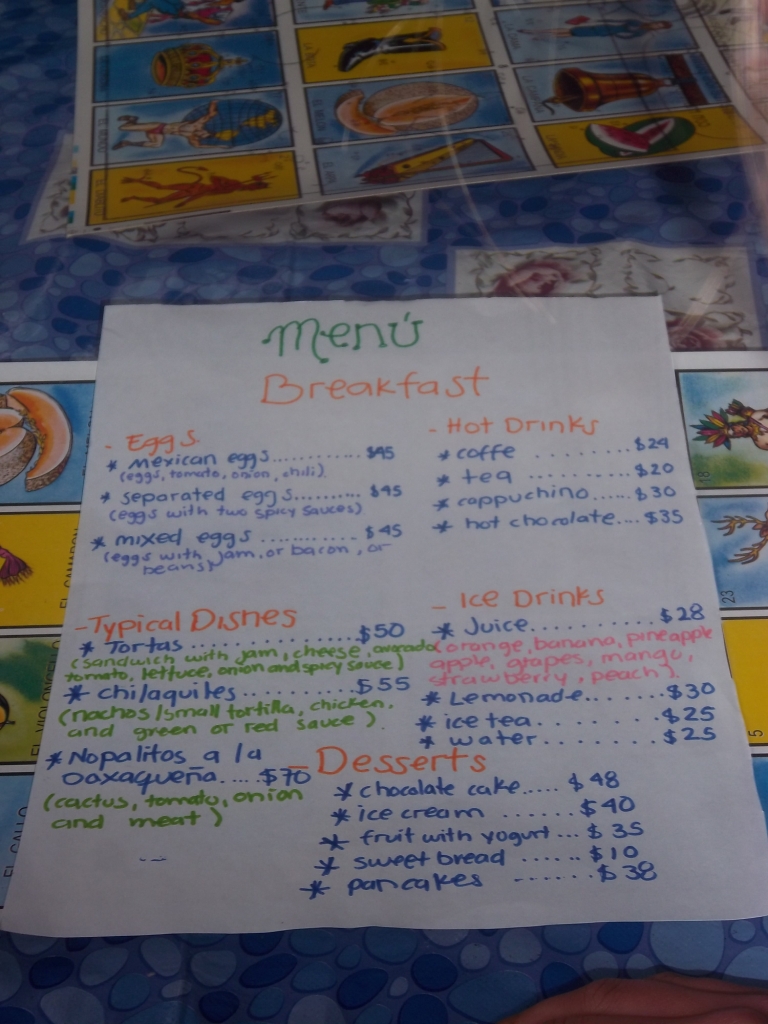 Menú
Breakfast
- Eggs
* mexican eggs............ $45
(eggs, tomato, onion, chili).
* separated eggs.......... $45
(eggs with two spicy sauces)
* mixed eggs ............. $45
(eggs with jam, or bacon, or
beans)
- Hot Drinks
* coffe ........ $24
* tea .......... $20
* cappuchino...... $30
* hot chocolate.... $35
- Typical Dishes
* Tortas ................ $50
(sandwich with jam, cheese, avorado
tomato, lettuce, onion and spicy sauce)
* chilaquiles ........... $55
(nachos/small tortilla, chicken,
and green or red sauce).
* Nopalitos a la
Oaxaqueña..... $70
(cactus, tomato, onion
and meat)
- Ice Drinks
* Juice.......... $28
(orange, banana, pineapple
apple, grapes, mango,
strawberry, peach).
* Lemonade....... $30
* ice tea........ $25
* water.......... $25
- Desserts
* chocolate cake..... $48
* ice cream ...... $40
* fruit with yogurt... $35
* sweet bread ...... $10
* pancakes ....... $38
EL CAMARON
EL VIOLONCELLO
EL GALLO
18
23
5